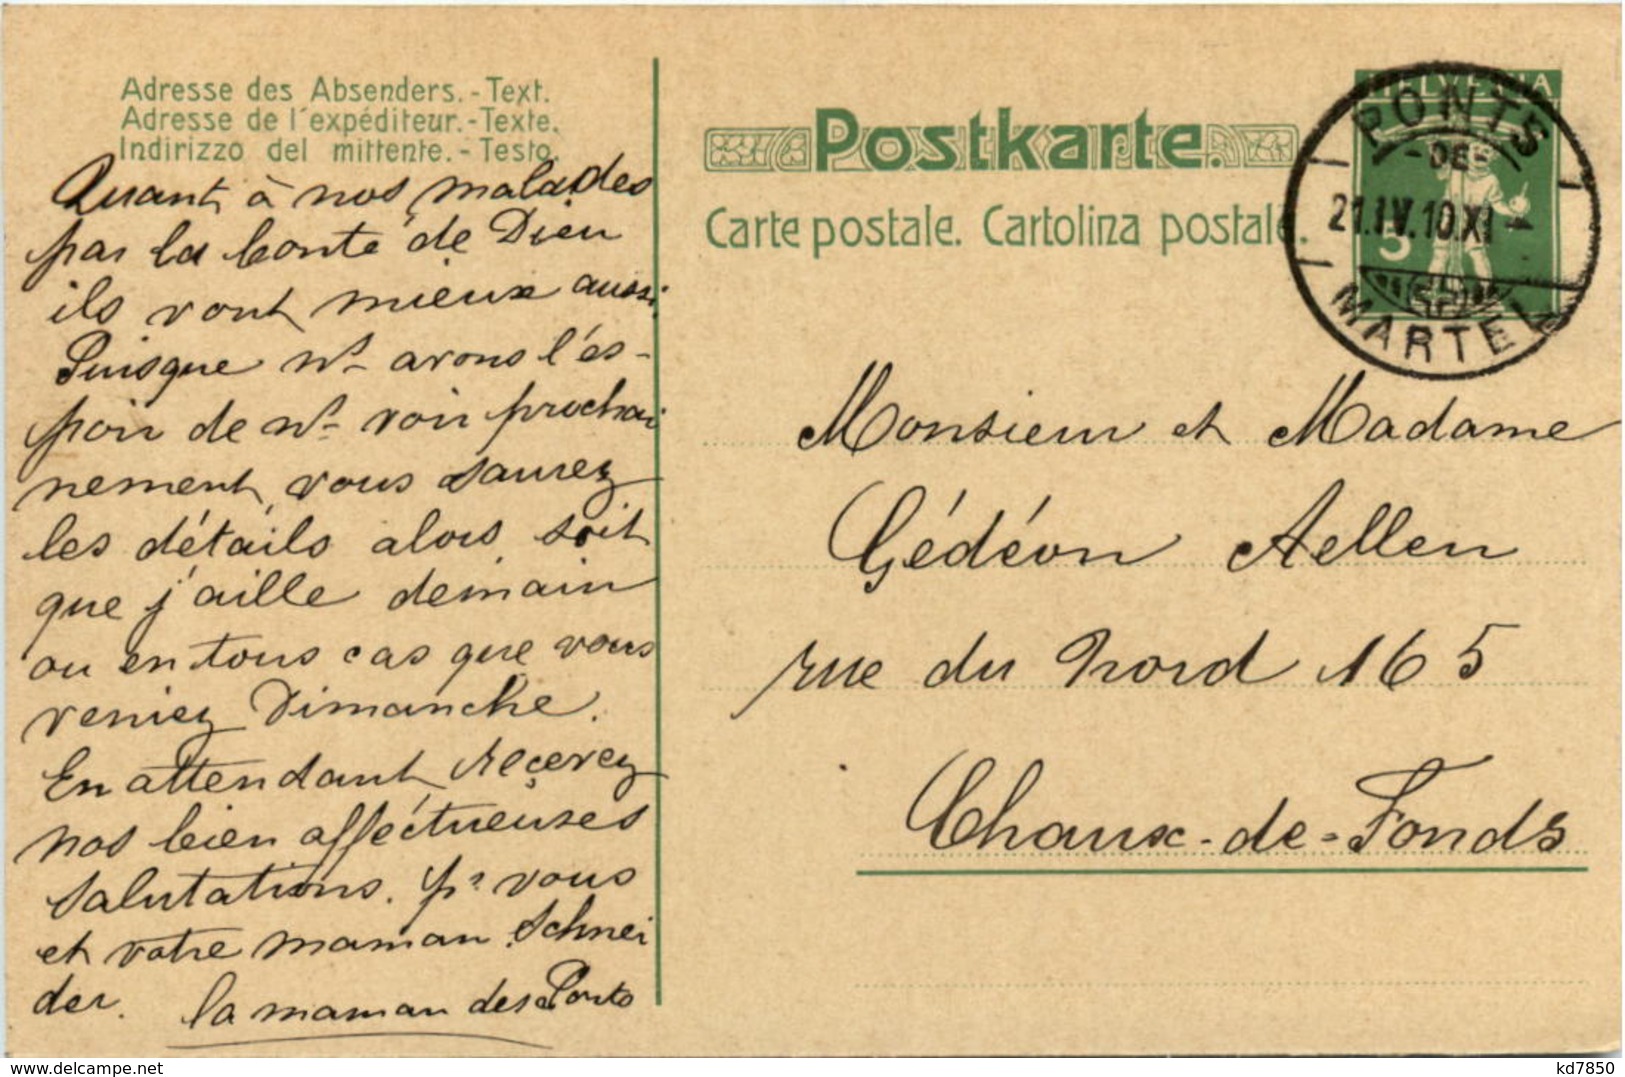 Adresse des Absenders. - Text.
Adresse de l'expéditeur. - Texte.
Indirizzo del mittente. - Testo.
Quant à nos malades
par la bonté de Dieu
ils vont mieux aussi
Puisque ns. avons l'es-
poir de ns. voir prochai
nement, vous saurez
les détails alors, soit
que j'aille demain
ou en tous cas que vous
veniez Dimanche.
En attendant, reçevez
nos bien afféctueuses
salutations. pr. vous
et votre maman Schnei
der.
la maman des Ponts
Postkarte.
Carte postale. Cartolina postale.
HELVETIA
5
PONTS
-DE-
21.IV.10.XI-
MARTEL
Monsieur et Madame
Gédéon Aellen
rue du Nord 165
Chaux-de-Fonds
delcampe.net
kd7850